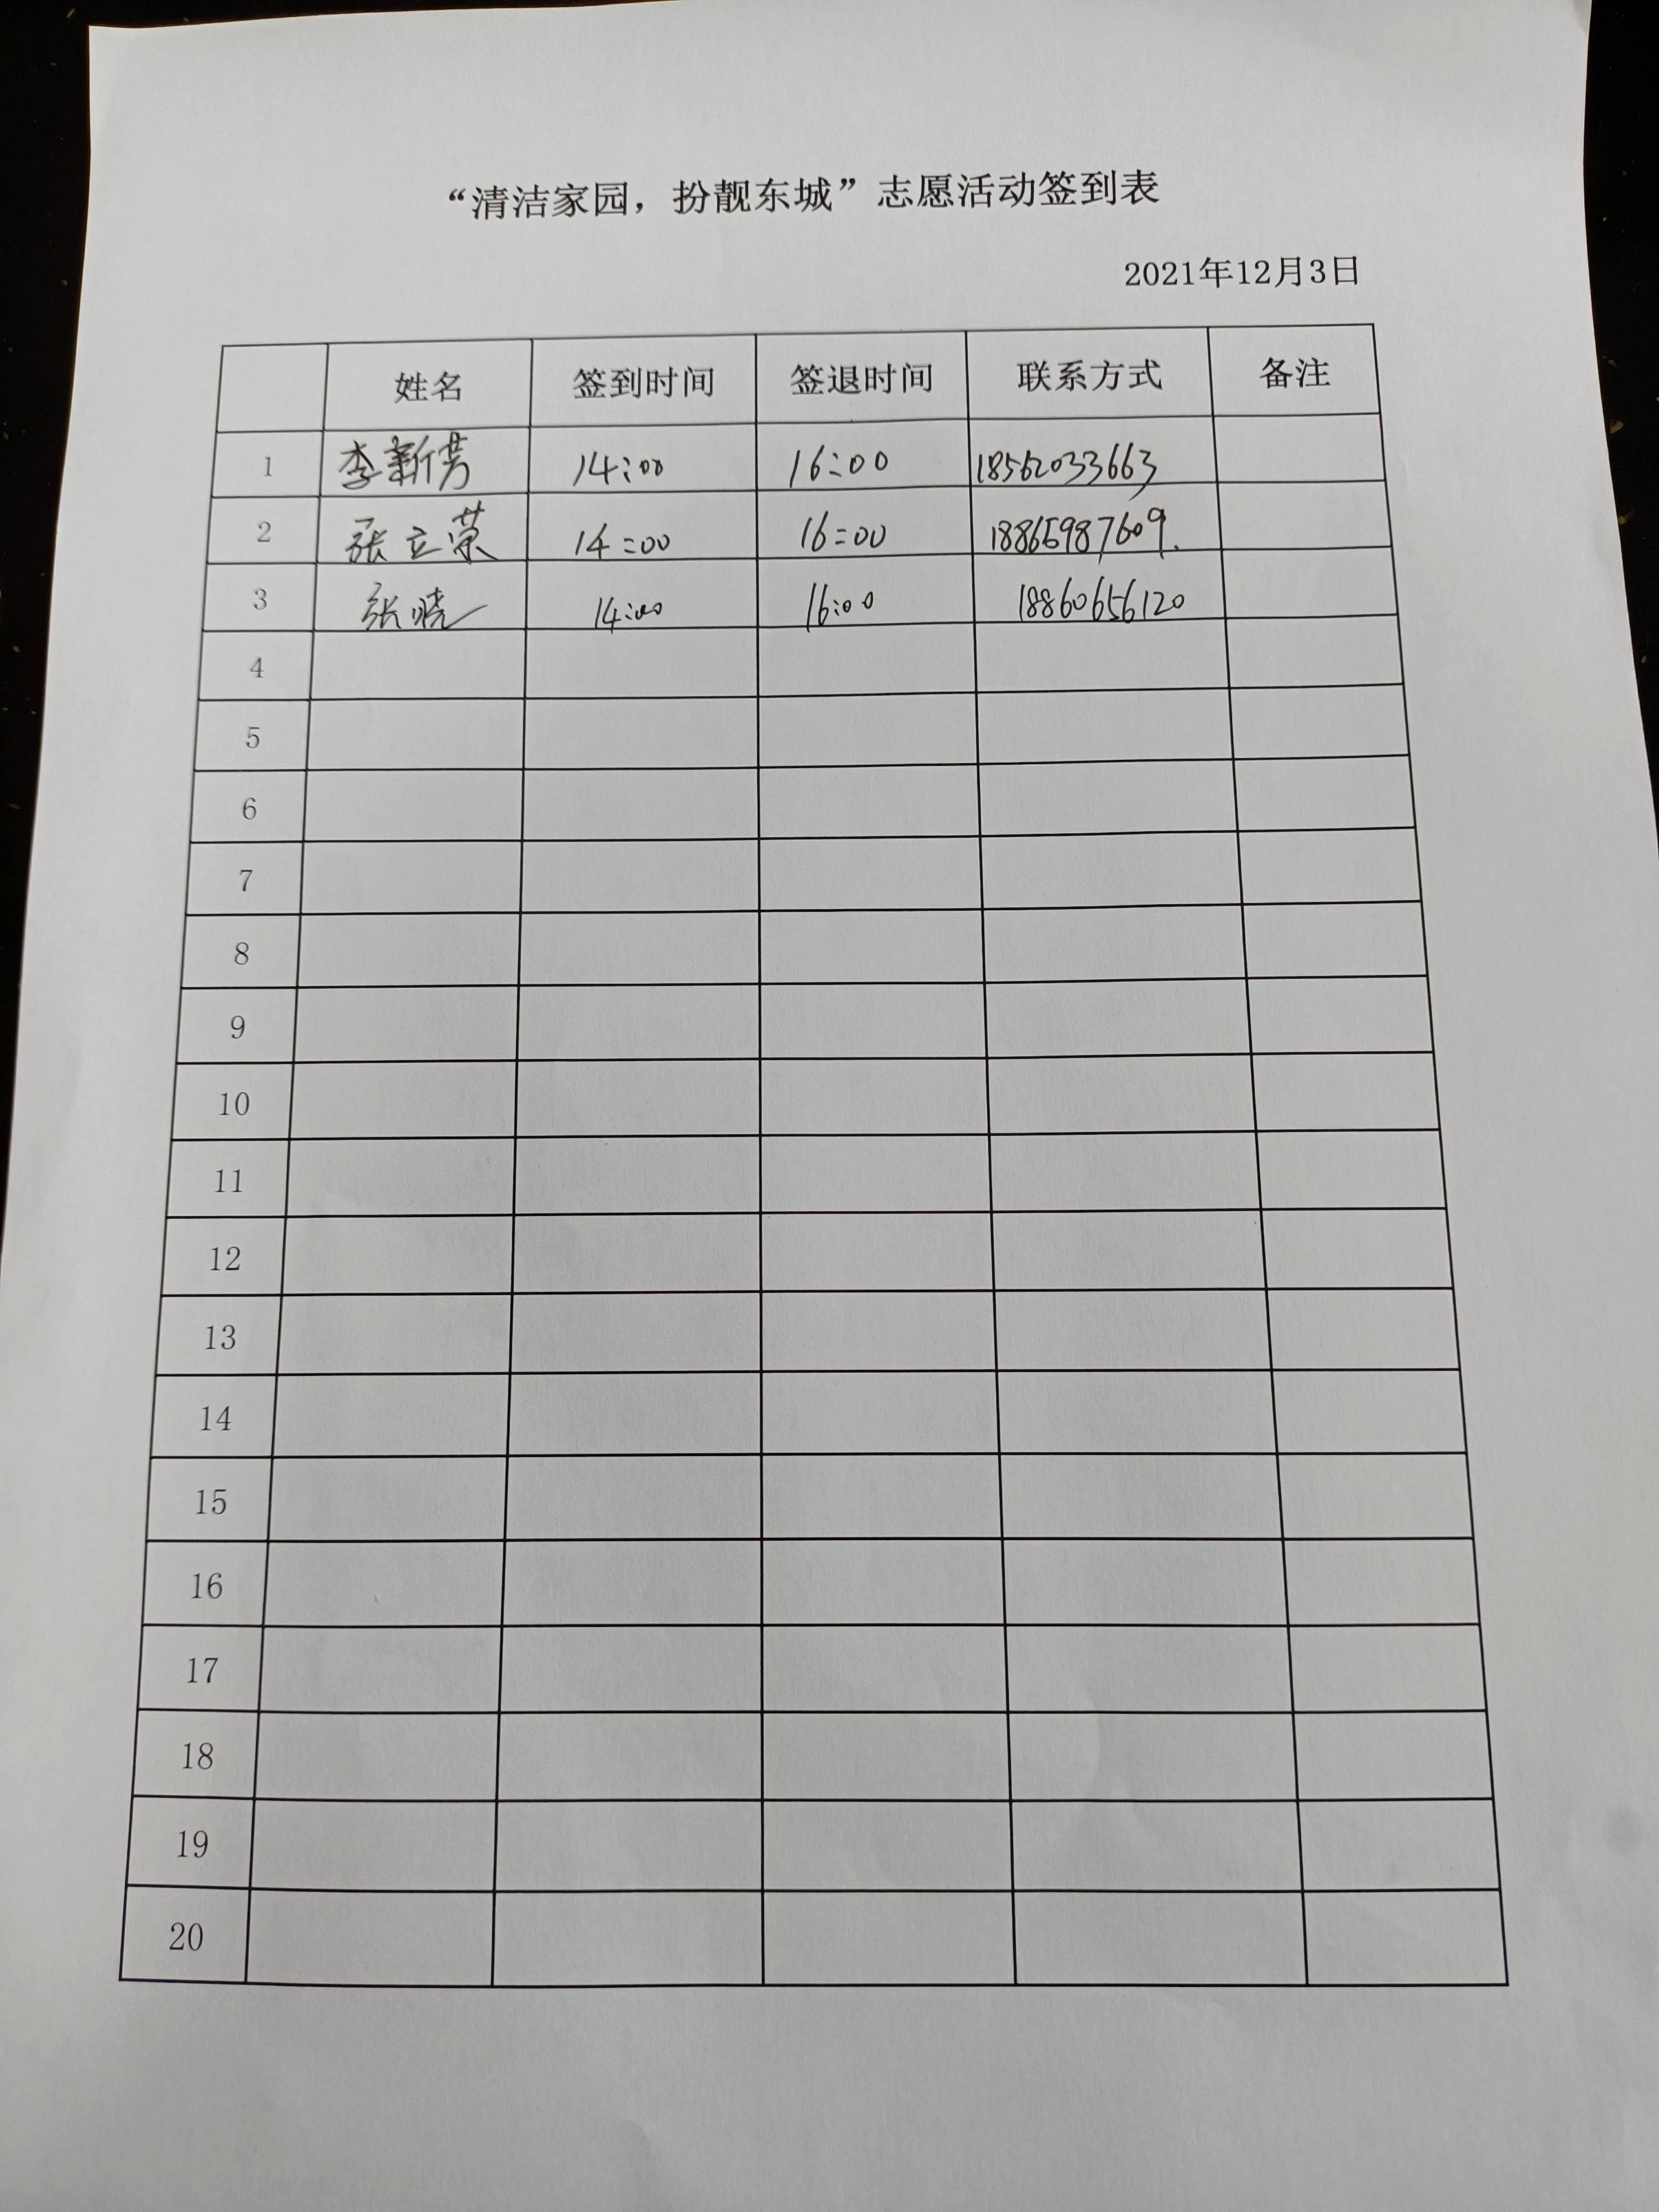 “清洁家园，扮靓东城”志愿活动签到表
2021年12月3日
姓名 签到时间 签退时间 联系方式 备注
1 李新芳 14:00 16:00 18562033663
2 张立荣 14:00 16:00 18865987609.
3 张晓 14:00 16:00 18860656120
4
5
6
7
8
9
10
11
12
13
14
15
16
17
18
19
20